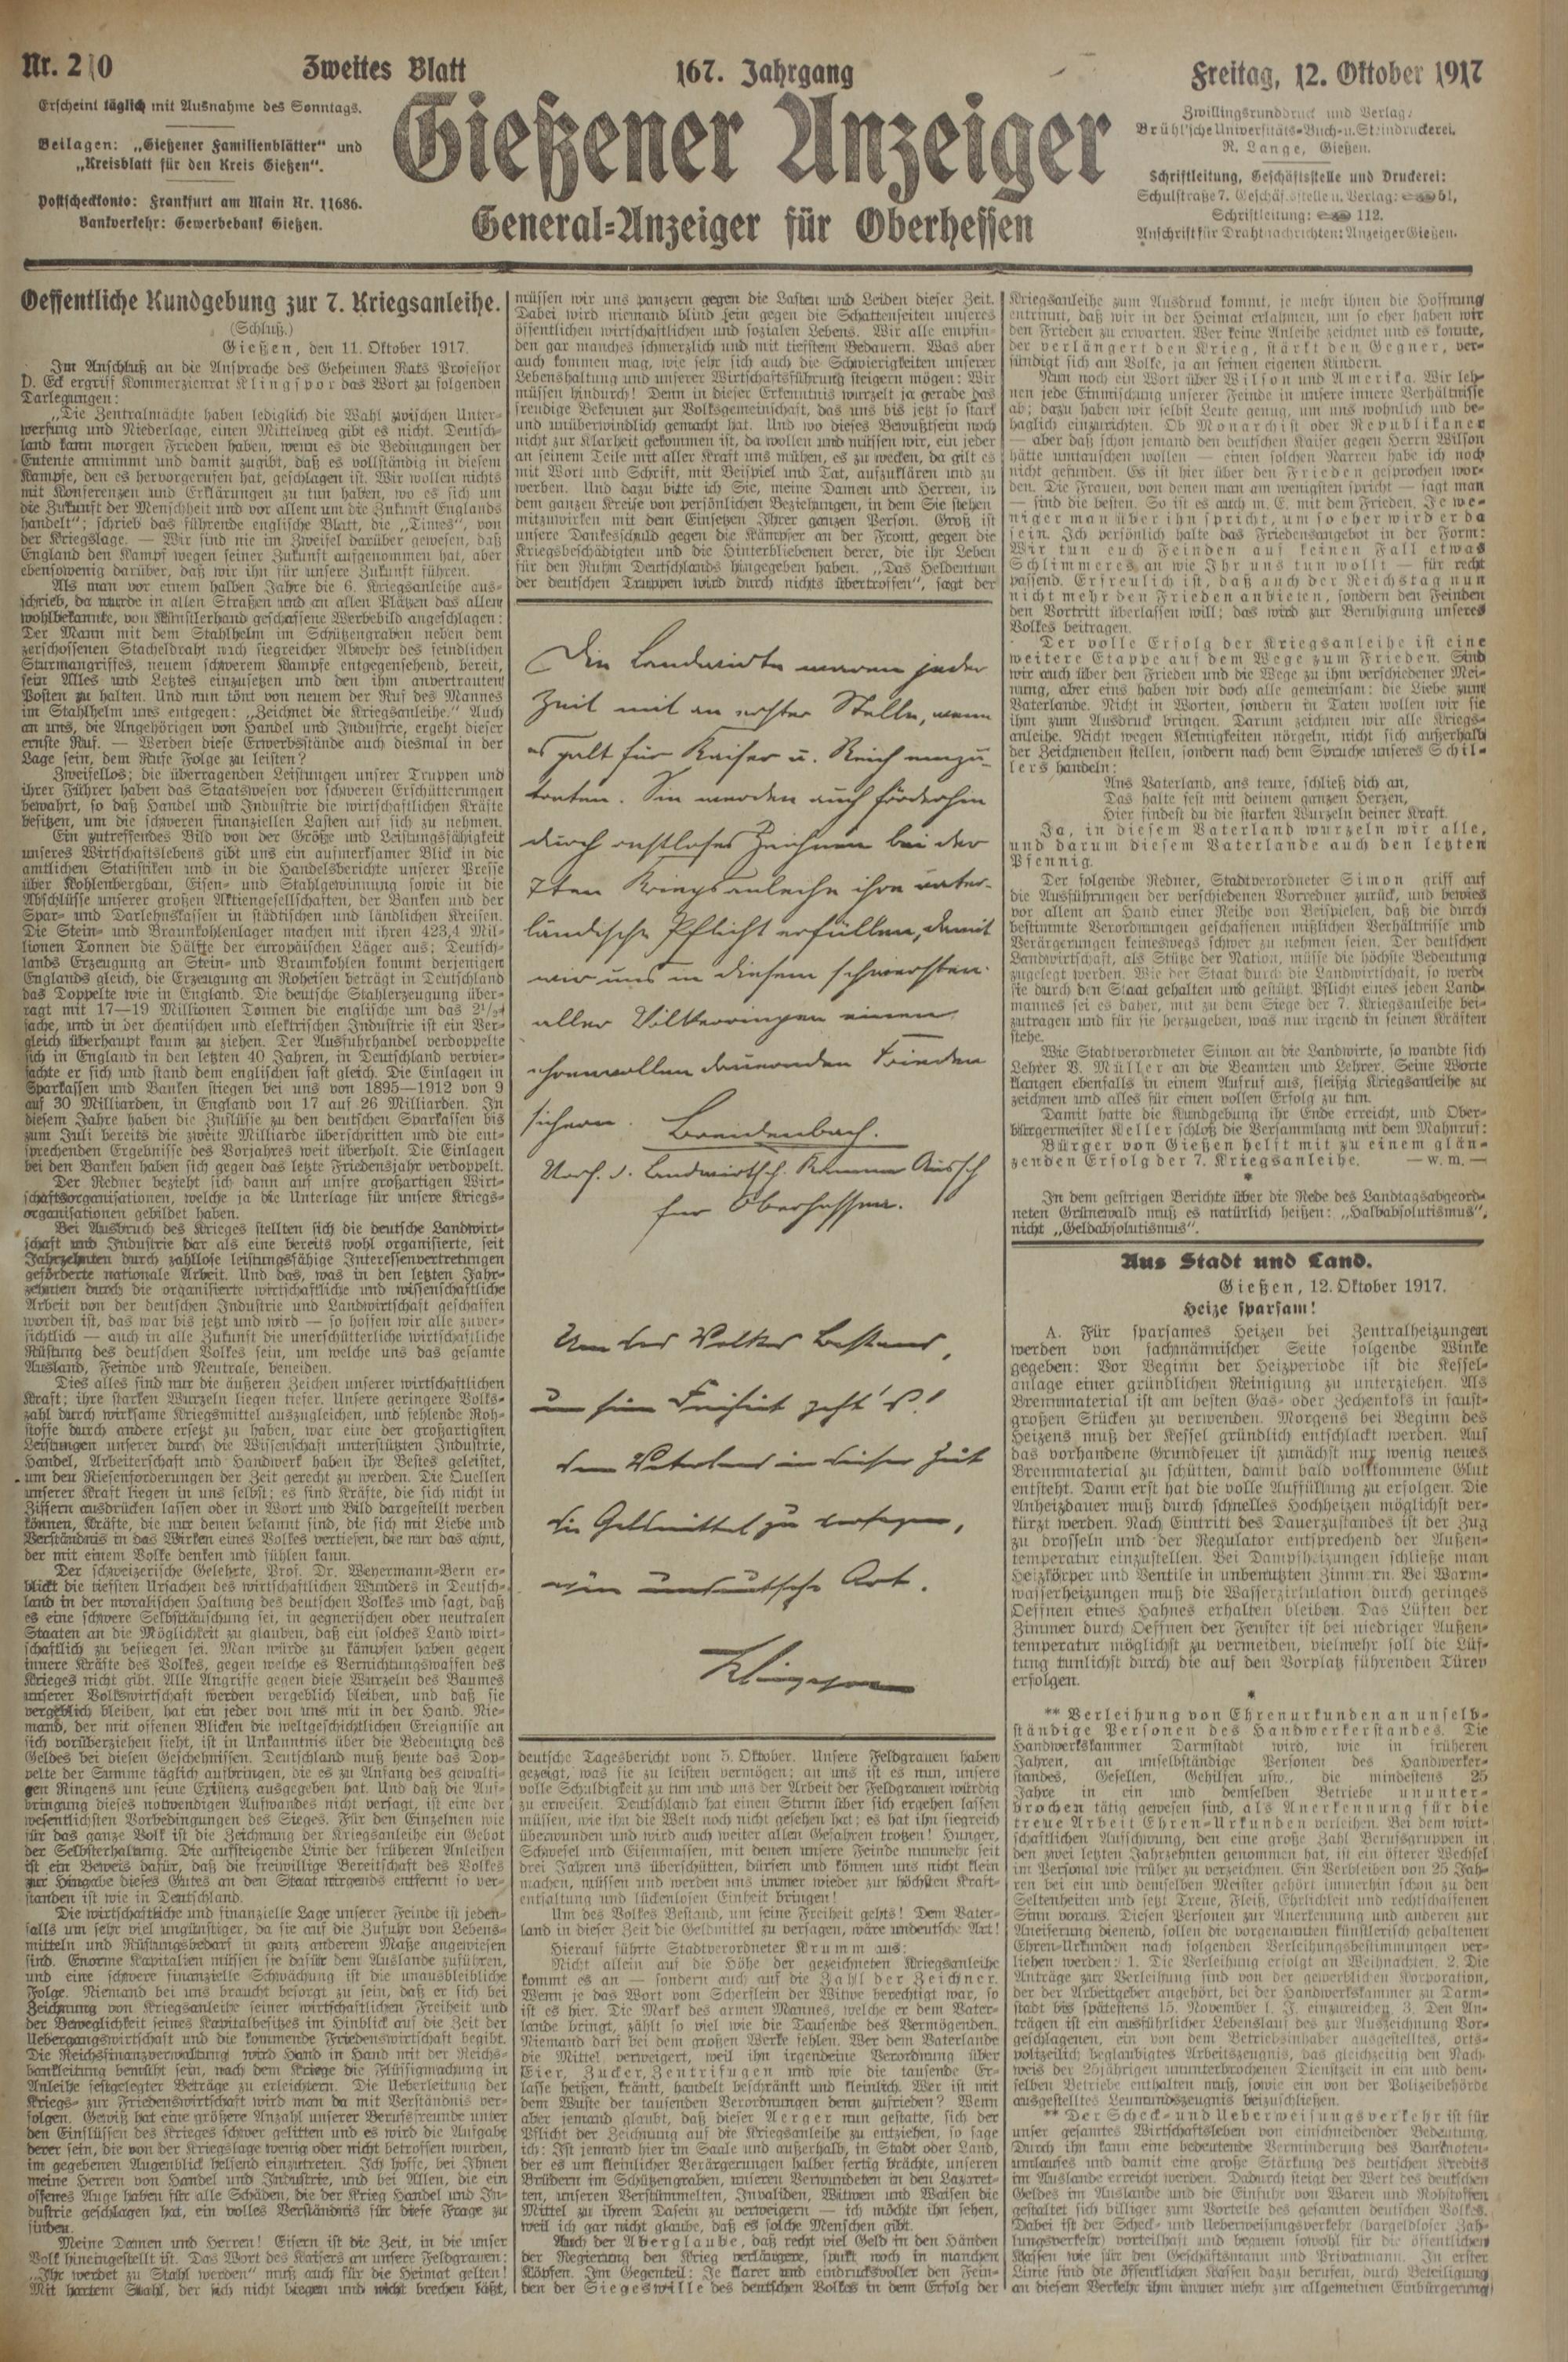 Nr. 240
Zweites Blatt
167. Jahrgang
Freitag, 12. Oktober 1917
Erscheint täglich mit Ausnahme des Sonntags.
Beilagen: „Gießener Familienblätter“ und
„Kreisblatt für den Kreis Gießen“.
Postscheckkonto: Frankfurt am Main Nr. 11686.
Bankverkehr: Gewerbebank Gießen.
Gießener Anzeiger
General-Anzeiger für Oberhessen
Zwillingsrunddruck und Verlag:
Brühl'sche Universitäts-Buch- u. Steindruckerei.
R. Lange, Gießen.
Schriftleitung, Geschäftsstelle und Druckerei:
Schulstraße 7. Geschäftsstelle u. Verlag: 51,
Schriftleitung: 112.
Anschrift für Drahtnachrichten: Anzeiger Gießen.
Oeffentliche Kundgebung zur 7. Kriegsanleihe.
(Schluß.)
Gießen, den 11. Oktober 1917.
Im Anschluß an die Ansprache des Geheimen Rats Professor
D. Eck ergriff Kommerzienrat Klingspor das Wort zu folgenden
Darlegungen:
„Die Zentralmächte haben lediglich die Wahl zwischen Unter-
werfung und Niederlage, einen Mittelweg gibt es nicht. Deutsch-
land kann morgen Frieden haben, wenn es die Bedingungen der
Entente annimmt und damit zugibt, daß es vollständig in diesem
Kampfe, den es hervorgerufen hat, geschlagen ist. Wir wollen nichts
mit Konferenzen und Erklärungen zu tun haben, wo es sich um
die Zukunft der Menschheit und vor allem um die Zukunft Englands
handelt“; schrieb das führende englische Blatt, die „Times“, von
der Kriegslage. — Wir sind nie im Zweifel darüber gewesen, daß
England den Kampf wegen seiner Zukunft aufgenommen hat, aber
ebensowenig darüber, daß wir ihn für unsere Zukunft führen.
Als man vor einem halben Jahre die 6. Kriegsanleihe aus-
schrieb, da wurde in allen Straßen und an allen Plätzen das allen
wohlbekannte, von Künstlerhand geschaffene Werbebild angeschlagen:
Der Mann mit dem Stahlhelm im Schützengraben neben dem
zerschossenen Stacheldraht nach siegreicher Abwehr des feindlichen
Sturmangriffes, neuem schwerem Kampfe entgegensehend, bereit,
sein Alles und Letztes einzusetzen und den ihm anvertrauten
Posten zu halten. Und nun tönt von neuem der Ruf des Mannes
im Stahlhelm uns entgegen: „Zeichnet die Kriegsanleihe.“ Auch
an uns, die Angehörigen von Handel und Industrie, ergeht dieser
ernste Ruf. — Werden diese Erwerbsstände auch diesmal in der
Lage sein, dem Rufe Folge zu leisten?
Zweifellos; die überragenden Leistungen unsrer Truppen und
ihrer Führer haben das Staatswesen vor schweren Erschütterungen
bewahrt, so daß Handel und Industrie die wirtschaftlichen Kräfte
besitzen, um die schweren finanziellen Lasten auf sich zu nehmen.
Ein zutreffendes Bild von der Größe und Leistungsfähigkeit
unseres Wirtschaftslebens gibt uns ein aufmerksamer Blick in die
amtlichen Statistiken und in die Handelsberichte unserer Presse
über Kohlenbergbau, Eisen- und Stahlgewinnung sowie in die
Abschlüsse unserer großen Aktiengesellschaften, der Banken und der
Spar- und Darlehnskassen in städtischen und ländlichen Kreisen.
Die Stein- und Braunkohlenlager machen mit ihren 423,4 Mil-
lionen Tonnen die Hälfte der europäischen Läger aus; Deutsch-
lands Erzeugung an Stein- und Braunkohlen kommt derjenigen
Englands gleich, die Erzeugung an Roheisen beträgt in Deutschland
das Doppelte wie in England. Die deutsche Stahlerzeugung über-
ragt mit 17—19 Millionen Tonnen die englische um das 2½-
fache, und in der chemischen und elektrischen Industrie ist ein Ver-
gleich überhaupt kaum zu ziehen. Der Ausfuhrhandel verdoppelte
sich in England in den letzten 40 Jahren, in Deutschland vervier-
fachte er sich und stand dem englischen fast gleich. Die Einlagen in
Sparkassen und Banken stiegen bei uns von 1895—1912 von 9
auf 30 Milliarden, in England von 17 auf 26 Milliarden. In
diesem Jahre haben die Zuflüsse zu den deutschen Sparkassen bis
zum Juli bereits die zweite Milliarde überschritten und die ent-
sprechenden Ergebnisse des Vorjahres weit überholt. Die Einlagen
bei den Banken haben sich gegen das letzte Friedensjahr verdoppelt.
Der Redner bezieht sich dann auf unsre großartigen Wirt-
schaftsorganisationen, welche ja die Unterlage für unsere Kriegs-
organisationen gebildet haben.
Bei Ausbruch des Krieges stellten sich die deutsche Landwirt-
schaft und Industrie dar als eine bereits wohl organisierte, seit
Jahrzehnten durch zahllose leistungsfähige Interessenvertretungen
geförderte nationale Arbeit. Und das, was in den letzten Jahr-
zehnten durch die organisierte wirtschaftliche und wissenschaftliche
Arbeit von der deutschen Industrie und Landwirtschaft geschaffen
worden ist, das war bis jetzt und wird — so hoffen wir alle zuver-
sichtlich — auch in alle Zukunft die unerschütterliche wirtschaftliche
Rüstung des deutschen Volkes sein, um welche uns das gesamte
Ausland, Feinde und Neutrale, beneiden.
Dies alles sind nur die äußeren Zeichen unserer wirtschaftlichen
Kraft; ihre starken Wurzeln liegen tiefer. Unsere geringere Volks-
zahl durch wirksame Kriegsmittel auszugleichen, und fehlende Roh-
stoffe durch andere ersetzt zu haben, war eine der großartigsten
Leistungen unserer durch die Wissenschaft unterstützten Industrie,
Handel, Arbeiterschaft und Handwerk haben ihr Bestes geleistet,
um den Riesenforderungen der Zeit gerecht zu werden. Die Quellen
unserer Kraft liegen in uns selbst; es sind Kräfte, die sich nicht in
Ziffern ausdrücken lassen oder in Wort und Bild dargestellt werden
können, Kräfte, die nur denen bekannt sind, die sich mit Liebe und
Verständnis in das Wirken eines Volkes vertiefen, die nur das ahnt,
der mit einem Volke denken und fühlen kann.
Der schweizerische Gelehrte, Prof. Dr. Weyermann-Bern er-
blickt die tiefsten Ursachen des wirtschaftlichen Wunders in Deutsch-
land in der moralischen Haltung des deutschen Volkes und sagt, daß
es eine schwere Selbsttäuschung sei, in gegnerischen oder neutralen
Staaten an die Möglichkeit zu glauben, daß ein solches Land wirt-
schaftlich zu besiegen sei. Man würde zu kämpfen haben gegen
innere Kräfte des Volkes, gegen welche es Vernichtungswaffen des
Krieges nicht gibt. Alle Angriffe gegen diese Wurzeln des Baumes
unserer Volkswirtschaft werden vergeblich bleiben, und daß sie
vergeblich bleiben, hat ein jeder von uns mit in der Hand. Nie-
mand, der mit offenen Blicken die weltgeschichtlichen Ereignisse an
sich vorüberziehen sieht, ist in Unkenntnis über die Bedeutung des
Geldes bei diesen Geschehnissen. Deutschland muß heute das Dop-
pelte der Summe täglich aufbringen, die es zu Anfang des gewalti-
gen Ringens um seine Existenz ausgegeben hat. Und daß die Auf-
bringung dieses notwendigen Aufwandes nicht versagt, ist eine der
wesentlichsten Vorbedingungen des Sieges. Für den Einzelnen wie
für das ganze Volk ist die Zeichnung der Kriegsanleihe ein Gebot
der Selbsterhaltung. Die aufsteigende Linie der früheren Anleihen
ist ein Beweis dafür, daß die freiwillige Bereitschaft des Volkes
zur Hingabe dieses Gutes an den Staat nirgends entfernt so ver-
standen ist wie in Deutschland.
Die wirtschaftliche und finanzielle Lage unserer Feinde ist jeden-
falls um sehr viel ungünstiger, da sie auf die Zufuhr von Lebens-
mitteln und Rüstungsbedarf in ganz anderem Maße angewiesen
sind. Enorme Kapitalien müssen sie dafür dem Auslande zuführen,
und eine schwere finanzielle Schwächung ist die unausbleibliche
Folge. Niemand bei uns braucht besorgt zu sein, daß er sich bei
Zeichnung von Kriegsanleihe seiner wirtschaftlichen Freiheit und
der Beweglichkeit seines Kapitalbesitzes im Hinblick auf die Zeit der
Uebergangswirtschaft und die kommende Friedenswirtschaft begibt.
Die Reichsfinanzverwaltung wird Hand in Hand mit der Reichs-
bankleitung bemüht sein, nach dem Kriege die Flüssigmachung in
Anleihe festgelegter Beträge zu erleichtern. Die Ueberleitung der
Kriegs- zur Friedenswirtschaft wird man da mit Verständnis ver-
folgen. Gewiß hat eine größere Anzahl unserer Berufsfreunde unter
den Einflüssen des Krieges schwer gelitten und es wird die Aufgabe
derer sein, die von der Kriegslage wenig oder nicht betroffen wurden,
im gegebenen Augenblick helfend einzutreten. Ich hoffe, bei Ihnen
meine Herren von Handel und Industrie, und bei Allen, die ein
offenes Auge haben für alle Schäden, die der Krieg Handel und In-
dustrie geschlagen hat, ein volles Verständnis für diese Frage zu
finden.
Meine Damen und Herren! Eisern ist die Zeit, in die unser
Volk hineingestellt ist. Das Wort des Kaisers an unsere Feldgrauen:
„Ihr werdet zu Stahl werden“ muß auch für die Heimat gelten!
Mit hartem Stahl, der sich nicht biegen und nicht brechen läßt,
müssen wir uns panzern gegen die Lasten und Leiden dieser Zeit.
Dabei wird niemand blind sein gegen die Schattenseiten unseres
öffentlichen wirtschaftlichen und sozialen Lebens. Wir alle empfin-
den gar manches schmerzlich und mit tiefstem Bedauern. Was aber
auch kommen mag, wie sehr sich auch die Schwierigkeiten unserer
Lebenshaltung und unserer Wirtschaftsführung steigern mögen: Wir
müssen hindurch! Denn in dieser Erkenntnis wurzelt ja gerade das
freudige Bekennen zur Volksgemeinschaft, das uns bis jetzt so stark
und unüberwindlich gemacht hat. Und wo dieses Bewußtsein noch
nicht zur Klarheit gekommen ist, da wollen und müssen wir, ein jeder
an seinem Teile mit aller Kraft uns mühen, es zu wecken, da gilt es
mit Wort und Schrift, mit Beispiel und Tat, aufzuklären und zu
werben. Und dazu bitte ich Sie, meine Damen und Herren, in
dem ganzen Kreise von persönlichen Beziehungen, in dem Sie stehen
mitzuwirken mit dem Einsetzen Ihrer ganzen Person. Groß ist
unsere Dankesschuld gegen die Kämpfer an der Front, gegen die
Kriegsbeschädigten und die Hinterbliebenen derer, die ihr Leben
für den Ruhm Deutschlands hingegeben haben. „Das Heldentum
der deutschen Truppen wird durch nichts übertroffen“, sagt der
Die Landwirte waren jeder
Zeit mit an erster Stelle, wenn
es galt für Kaiser u. Reich einzu-
treten. Sie werden auch förderhin
durch restloses Zeichnen bei der
7ten Kriegsanleihe ihre vater-
ländische Pflicht erfüllen, damit
wir uns in diesem schwersten
aller Völkerringen einen
ehrenvollen dauernden Frieden
sichern. Breidenbach.
Vors. d. Landwirtsch. Kammer Aussch
für Oberhessen.
Um des Volkes Bestand,
um seine Freiheit geht's!
dem Vaterland in dieser Zeit
die Geldmittel zu versagen,
wäre undeutsche Art.
Klingspor
deutsche Tagesbericht vom 5. Oktober. Unsere Feldgrauen haben
gezeigt, was sie zu leisten vermögen; an uns ist es nun, unsere
volle Schuldigkeit zu tun und uns der Arbeit der Feldgrauen würdig
zu erweisen. Deutschland hat einen Sturm über sich ergehen lassen
müssen, wie ihn die Welt noch nicht gesehen hat; es hat ihn siegreich
überwunden und wird auch weiter allen Gefahren trotzen! Hunger,
Schwefel und Eisenmassen, mit denen unsere Feinde nunmehr seit
drei Jahren uns überschütten, dürfen und können uns nicht klein
machen, müssen und werden uns immer wieder zur höchsten Kraft-
entfaltung und lückenlosen Einheit bringen!
Um des Volkes Bestand, um seine Freiheit gehts! Dem Vater-
land in dieser Zeit die Geldmittel zu versagen, wäre undeutsche Art!
Hierauf führte Stadtverordneter Krumm aus:
Nicht allein auf die Höhe der gezeichneten Kriegsanleihe
kommt es an — sondern auch auf die Zahl der Zeichner.
Wenn je das Wort vom Scherflein der Witwe berechtigt war, so
ist es hier. Die Mark des armen Mannes, welche er dem Vater-
lande bringt, zählt so viel wie die Tausende des Vermögenden.
Niemand darf bei dem großen Werke fehlen. Wer dem Vaterlande
die Mittel verweigert, weil ihn irgendeine Verordnung über
Eier, Zucker, Zentrifugen und wie die tausende Er-
lasse heißen, kränkt, handelt beschränkt und kleinlich. Wer ist mit
dem Wuste der tausenden Verordnungen denn zufrieden? Wenn
aber jemand glaubt, daß dieser Aerger nun gestatte, sich der
Pflicht der Zeichnung auf die Kriegsanleihe zu entziehen, so sage
ich: Ist jemand hier im Saale und außerhalb, in Stadt oder Land,
der es um kleinlicher Verärgerungen halber fertig brächte, unseren
Brüdern im Schützengraben, unseren Verwundeten in den Lazaret-
ten, unseren Verstümmelten, Invaliden, Witwen und Waisen die
Mittel zu ihrem Dasein zu verweigern — ich möchte ihn sehen,
weil ich gar nicht glaube, daß es solche Menschen gibt.
Auch der Aberglaube, daß recht viel Geld in den Händen
der Regierung den Krieg verlängere, spukt noch in manchen
Köpfen. Im Gegenteil: Je klarer und eindrucksvoller den Fein-
den der Siegeswille des deutschen Volkes in dem Erfolg der
Kriegsanleihe zum Ausdruck kommt, je mehr ihnen die Hoffnung
entrinnt, daß wir in der Heimat erlahmen, um so eher haben wir
den Frieden zu erwarten. Wer keine Anleihe zeichnet und es könnte,
der verlängert den Krieg, stärkt den Gegner, ver-
sündigt sich am Volke, ja an seinen eigenen Kindern.
Nun noch ein Wort über Wilson und Amerika. Wir leh-
nen jede Einmischung unserer Feinde in unsere innere Verhältnisse
ab; dazu haben wir selbst Leute genug, um uns wohnlich und be-
haglich einzurichten. Ob Monarchist oder Republikaner
— aber daß schon jemand den deutschen Kaiser gegen Herrn Wilson
hätte umtauschen wollen — einen solchen Narren habe ich noch
nicht gefunden. Es ist hier über den Frieden gesprochen wor-
den. Die Frauen, von denen man am wenigsten spricht — sagt man
— sind die besten. So ist es auch m. E. mit dem Frieden. Je we-
niger man über ihn spricht, um so eher wird er da
sein. Ich persönlich halte das Friedensangebot in der Form:
Wir tun euch Feinden auf keinen Fall etwas
Schlimmeres an wie Ihr uns tun wollt — für recht
passend. Erfreulich ist, daß auch der Reichstag nun
nicht mehr den Frieden anbieten, sondern den Feinden
den Vortritt überlassen will; das wird zur Beruhigung unseres
Volkes beitragen.
Der volle Erfolg der Kriegsanleihe ist eine
weitere Etappe auf dem Wege zum Frieden. Sind
wir auch über den Frieden und die Wege zu ihm verschiedener Mei-
nung, aber eins haben wir doch alle gemeinsam: die Liebe zum
Vaterlande. Nicht in Worten, sondern in Taten wollen wir sie
ihm zum Ausdruck bringen. Darum zeichnen wir alle Kriegs-
anleihe. Nicht wegen Kleinigkeiten nörgeln, nicht sich außerhalb
der Zeichnenden stellen, sondern nach dem Spruche unseres Schil-
lers handeln:
Ans Vaterland, ans teure, schließ dich an,
Das halte fest mit deinem ganzen Herzen,
Hier findest du die starken Wurzeln deiner Kraft.
Ja, in diesem Vaterland wurzeln wir alle,
und darum diesem Vaterlande auch den letzten
Pfennig.
Der folgende Redner, Stadtverordneter Simon griff auf
die Ausführungen der verschiedenen Vorredner zurück, und bewies
vor allem an Hand einer Reihe von Beispielen, daß die durch
bestimmte Verordnungen geschaffenen mißlichen Verhältnisse und
Verärgerungen keineswegs schwer zu nehmen seien. Der deutschen
Landwirtschaft, als Stütze der Nation, müsse die höchste Bedeutung
zugelegt werden. Wie der Staat durch die Landwirtschaft, so werde
sie durch den Staat gehalten und gestützt. Pflicht eines jeden Land-
mannes sei es daher, mit zu dem Siege der 7. Kriegsanleihe bei-
zutragen und für sie herzugeben, was nur irgend in seinen Kräften
stehe.
Wie Stadtverordneter Simon an die Landwirte, so wandte sich
Lehrer V. Müller an die Beamten und Lehrer. Seine Worte
klangen ebenfalls in einem Aufruf aus, fleißig Kriegsanleihe zu
zeichnen und alles für einen vollen Erfolg zu tun.
Damit hatte die Kundgebung ihr Ende erreicht, und Ober-
bürgermeister Keller schloß die Versammlung mit dem Mahnruf:
Bürger von Gießen helft mit zu einem glän-
zenden Erfolg der 7. Kriegsanleihe. — w. m. —
*
In dem gestrigen Berichte über die Rede des Landtagsabgeord-
neten Grünewald muß es natürlich heißen: „Halbabsolutismus“,
nicht „Geldabsolutismus“.
Aus Stadt und Land.
Gießen, 12. Oktober 1917.
Heize sparsam!
A. Für sparsames Heizen bei Zentralheizungen
werden von fachmännischer Seite folgende Winke
gegeben: Vor Beginn der Heizperiode ist die Kessel-
anlage einer gründlichen Reinigung zu unterziehen. Als
Brennmaterial ist am besten Gas- oder Zechenkoks in faust-
großen Stücken zu verwenden. Morgens bei Beginn des
Heizens muß der Kessel gründlich entschlackt werden. Auf
das vorhandene Grundfeuer ist zunächst nur wenig neues
Brennmaterial zu schütten, damit bald vollkommene Glut
entsteht. Dann erst hat die volle Auffüllung zu erfolgen. Die
Anheizdauer muß durch schnelles Hochheizen möglichst ver-
kürzt werden. Nach Eintritt des Dauerzustandes ist der Zug
zu drosseln und der Regulator entsprechend der Außen-
temperatur einzustellen. Bei Dampfheizungen schließe man
Heizkörper und Ventile in unbenutzten Zimmern. Bei Warm-
wasserheizungen muß die Wasserzirkulation durch geringes
Oeffnen eines Hahnes erhalten bleiben. Das Lüften der
Zimmer durch Oeffnen der Fenster ist bei niedriger Außen-
temperatur möglichst zu vermeiden, vielmehr soll die Lüf-
tung tunlichst durch die auf den Vorplatz führenden Türen
erfolgen.
*
** Verleihung von Ehrenurkunden an unselb-
ständige Personen des Handwerkerstandes. Die
Handwerkskammer Darmstadt wird, wie in früheren
Jahren, an unselbständige Personen des Handwerker-
standes, Gesellen, Gehilfen usw., die mindestens 25
Jahre in ein und demselben Betriebe ununter-
brochen tätig gewesen sind, als Anerkennung für die
treue Arbeit Ehren-Urkunden verleihen. Bei dem wirt-
schaftlichen Aufschwung, den eine große Zahl Berufsgruppen in
den zwei letzten Jahrzehnten genommen hat, ist ein öfterer Wechsel
im Personal wie früher zu verzeichnen. Ein Verbleiben von 25 Jah-
ren bei ein und demselben Meister gehört immerhin schon zu den
Seltenheiten und setzt Treue, Fleiß, Ehrlichkeit und rechtschaffenen
Sinn voraus. Diesen Personen zur Anerkennung und anderen zur
Aneiferung dienend, sollen die vorgenannten künstlerisch gehaltenen
Ehren-Urkunden nach folgenden Verleihungsbestimmungen ver-
liehen werden: 1. Die Verleihung erfolgt an Weihnachten. 2. Die
Anträge zur Verleihung sind von der gewerblichen Korporation,
der der Arbeitgeber angehört, bei der Handwerkskammer zu Darm-
stadt bis spätestens 15. November l. J. einzureichen. 3. Den An-
trägen ist ein ausführlicher Lebenslauf des zur Auszeichnung Vor-
geschlagenen, ein von dem Betriebsinhaber ausgestelltes, orts-
polizeilich beglaubigtes Arbeitszeugnis, das gleichzeitig den Nach-
weis der 25jährigen ununterbrochenen Dienstzeit in ein und dem-
selben Betriebe enthalten muß, sowie ein von der Polizeibehörde
ausgestelltes Leumundszeugnis beizuschließen.
** Der Scheck- und Ueberweisungsverkehr ist für
unser gesamtes Wirtschaftsleben von einschneidender Bedeutung.
Durch ihn kann eine bedeutende Verminderung des Banknoten-
umlaufes und damit eine große Stärkung des deutschen Kredits
im Auslande erreicht werden. Dadurch steigt der Wert des deutschen
Geldes im Auslande und die Einfuhr von Waren und Rohstoffen
gestaltet sich billiger zum Vorteile des gesamten deutschen Volkes.
Dabei ist der Scheck- und Ueberweisungsverkehr (bargeldloser Zah-
lungsverkehr) vorteilhaft und bequem sowohl für die öffentlichen
Kassen wie für den Geschäftsmann und Privatmann. In erster
Linie sind die öffentlichen Kassen dazu berufen, durch Beteiligung
an diesem Verkehr ihm immer mehr zur allgemeinen Einbürgerung